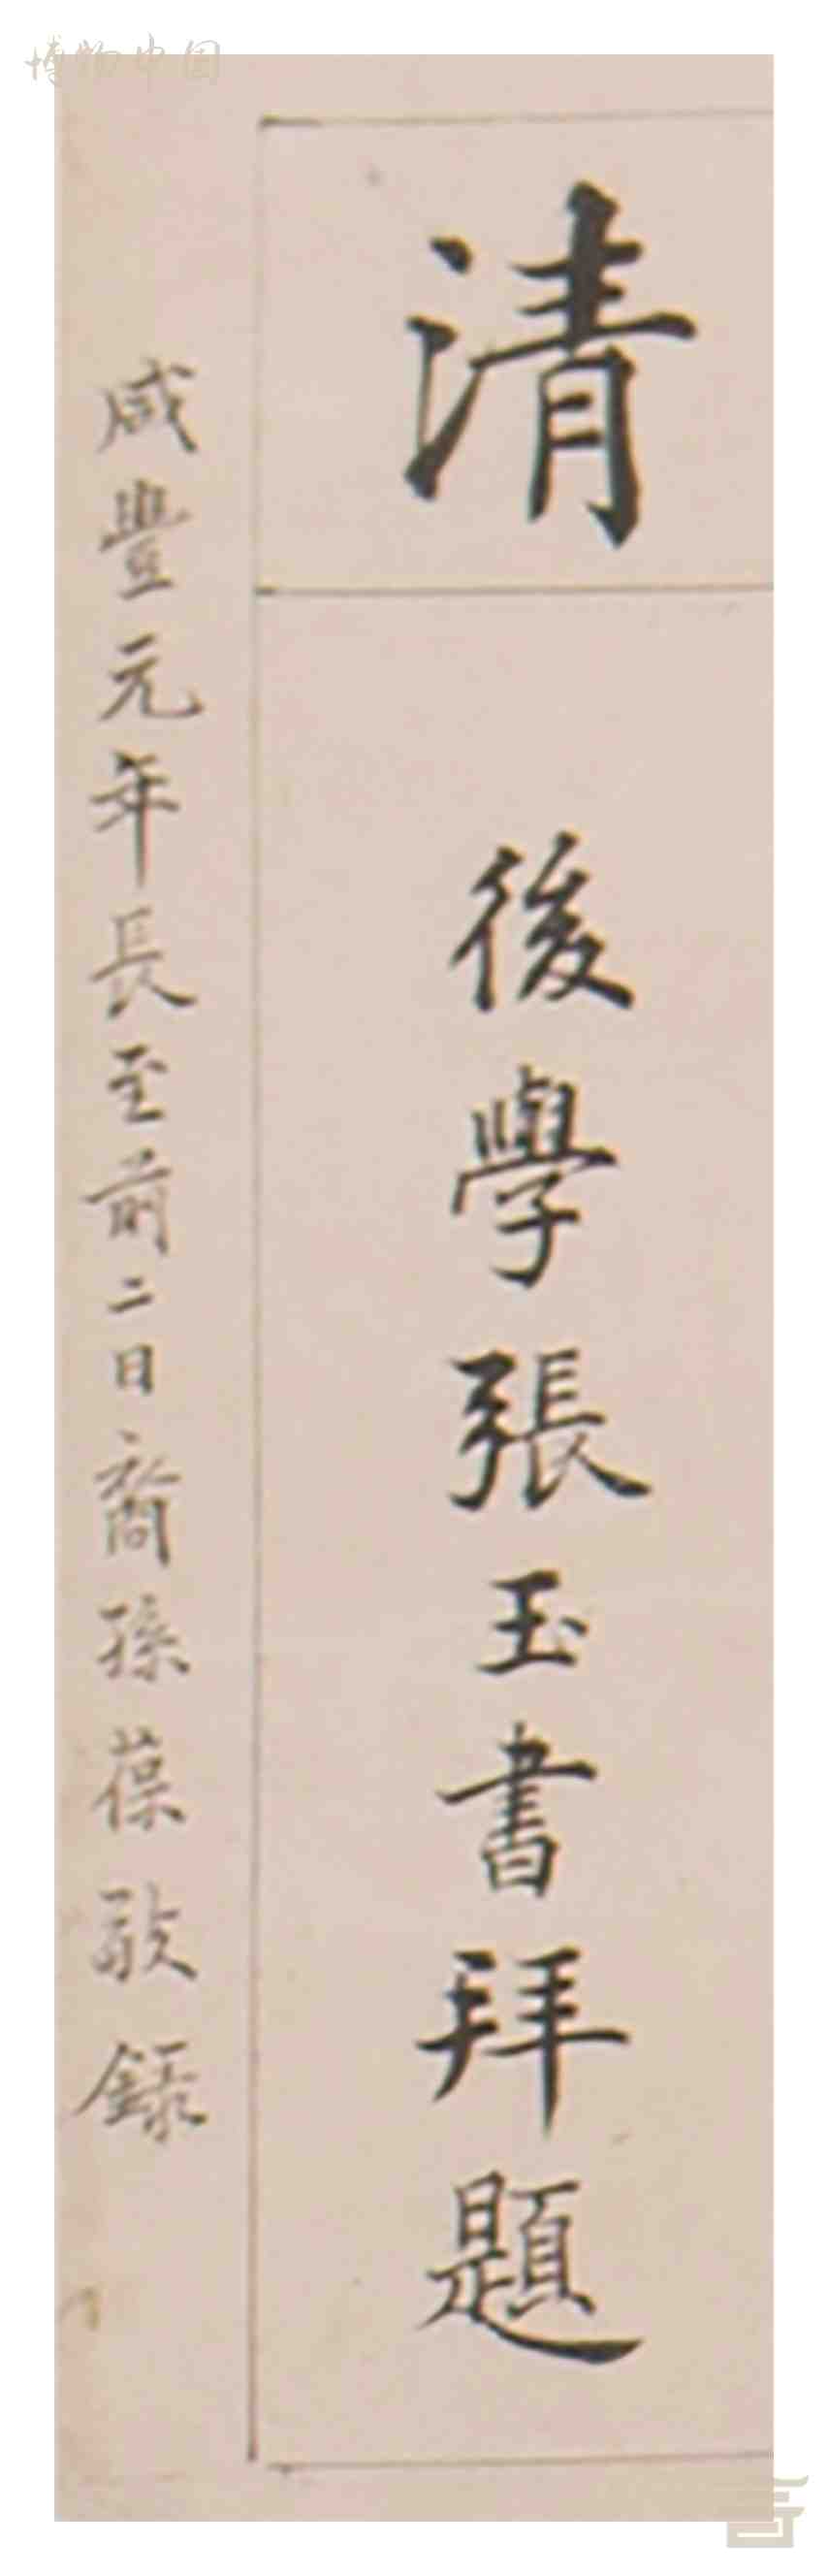 博物中国
清
後學張玉書拜題
咸豐元年長至前二日裔孫葆敬錄